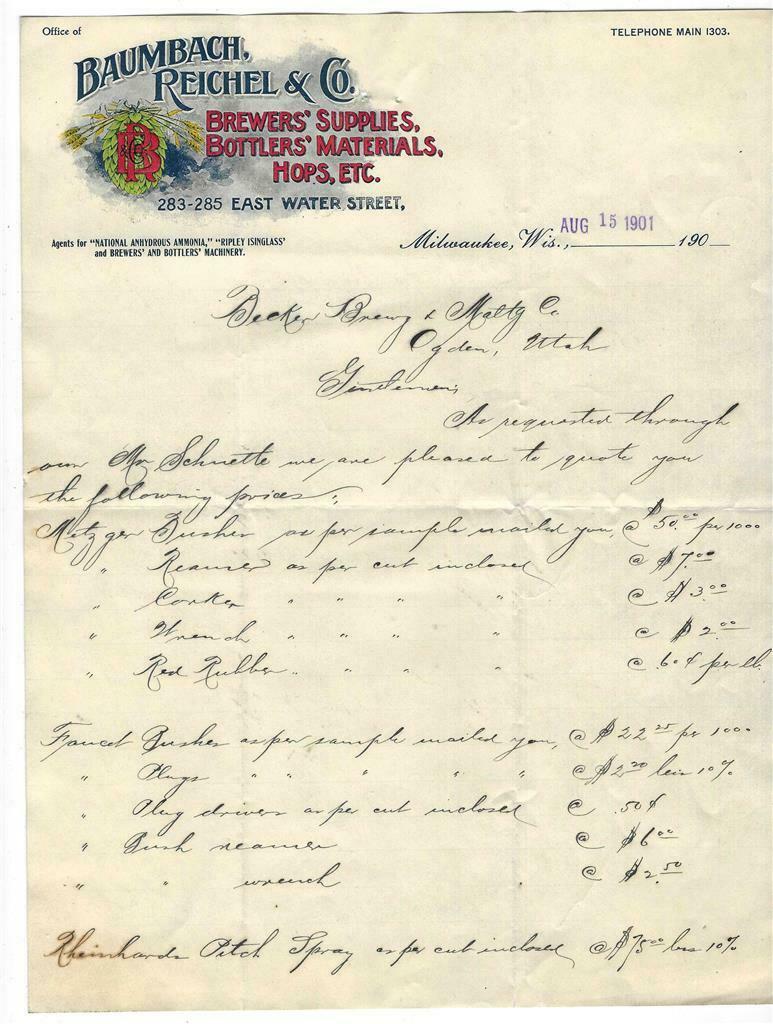 Office of
TELEPHONE MAIN 1303.
BAUMBACH,
REICHEL & CO.
BR & Co
BREWERS' SUPPLIES,
BOTTLERS' MATERIALS,
HOPS, ETC.
283-285 EAST WATER STREET,
Agents for "NATIONAL ANHYDROUS AMMONIA," "RIPLEY ISINGLASS"
and BREWERS' AND BOTTLERS' MACHINERY.
Milwaukee, Wis., AUG 15 1901 190
Becker Brewg & Maltg Co
Ogden, Utah
Gentlemen;
As requested through
our Mr Schuette we are pleased to quote you
the following prices:
Metzger Bushes as per sample mailed you, @ $50.00 per 1000
" Reamer as per cut inclosed @ $7.00
" Corker " " " " @ $3.00
" Wrench " " " " @ $2.00
" Red Rubber " " " " @ .60¢ per lb.
Faucet Bushes as per sample mailed you, @ $22.25 per 1000
" Plugs " " " " " @ $2.20 less 10%
" Plug drivers as per cut inclosed @ .50¢
" Bush reamer @ $6.00
" " wrench @ $2.50
Rheinhards Pitch Spray as per cut inclosed @ $75.00 less 10%